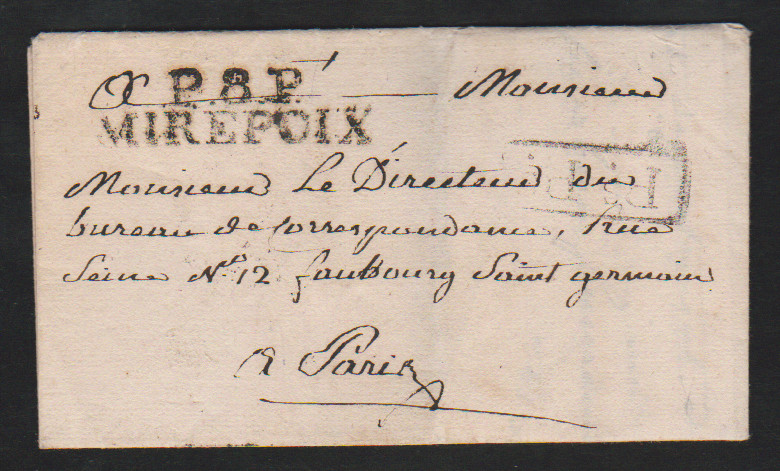 P.8.P.
A Monsieur
MIREPOIX
P.P.
Monsieur Le Directeur du
bureau de Correspondance, rue
Seine N° 12 fauBourg Saint germain
a Paris